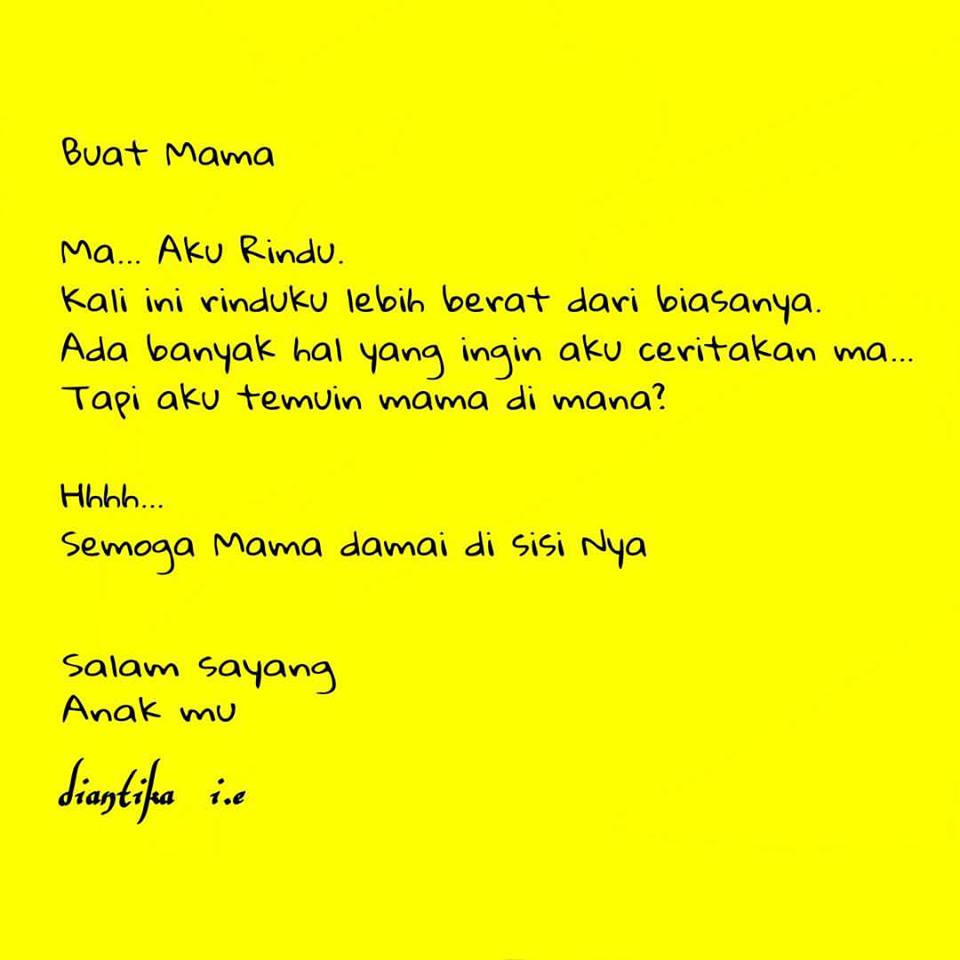 Buat Mama
Ma... Aku Rindu.
Kali ini rinduku lebih berat dari biasanya.
Ada banyak hal yang ingin aku ceritakan ma...
Tapi aku temuin mama di mana?
Hhhh...
Semoga Mama damai di sisi Nya
Salam sayang
Anak mu
diantika i.e